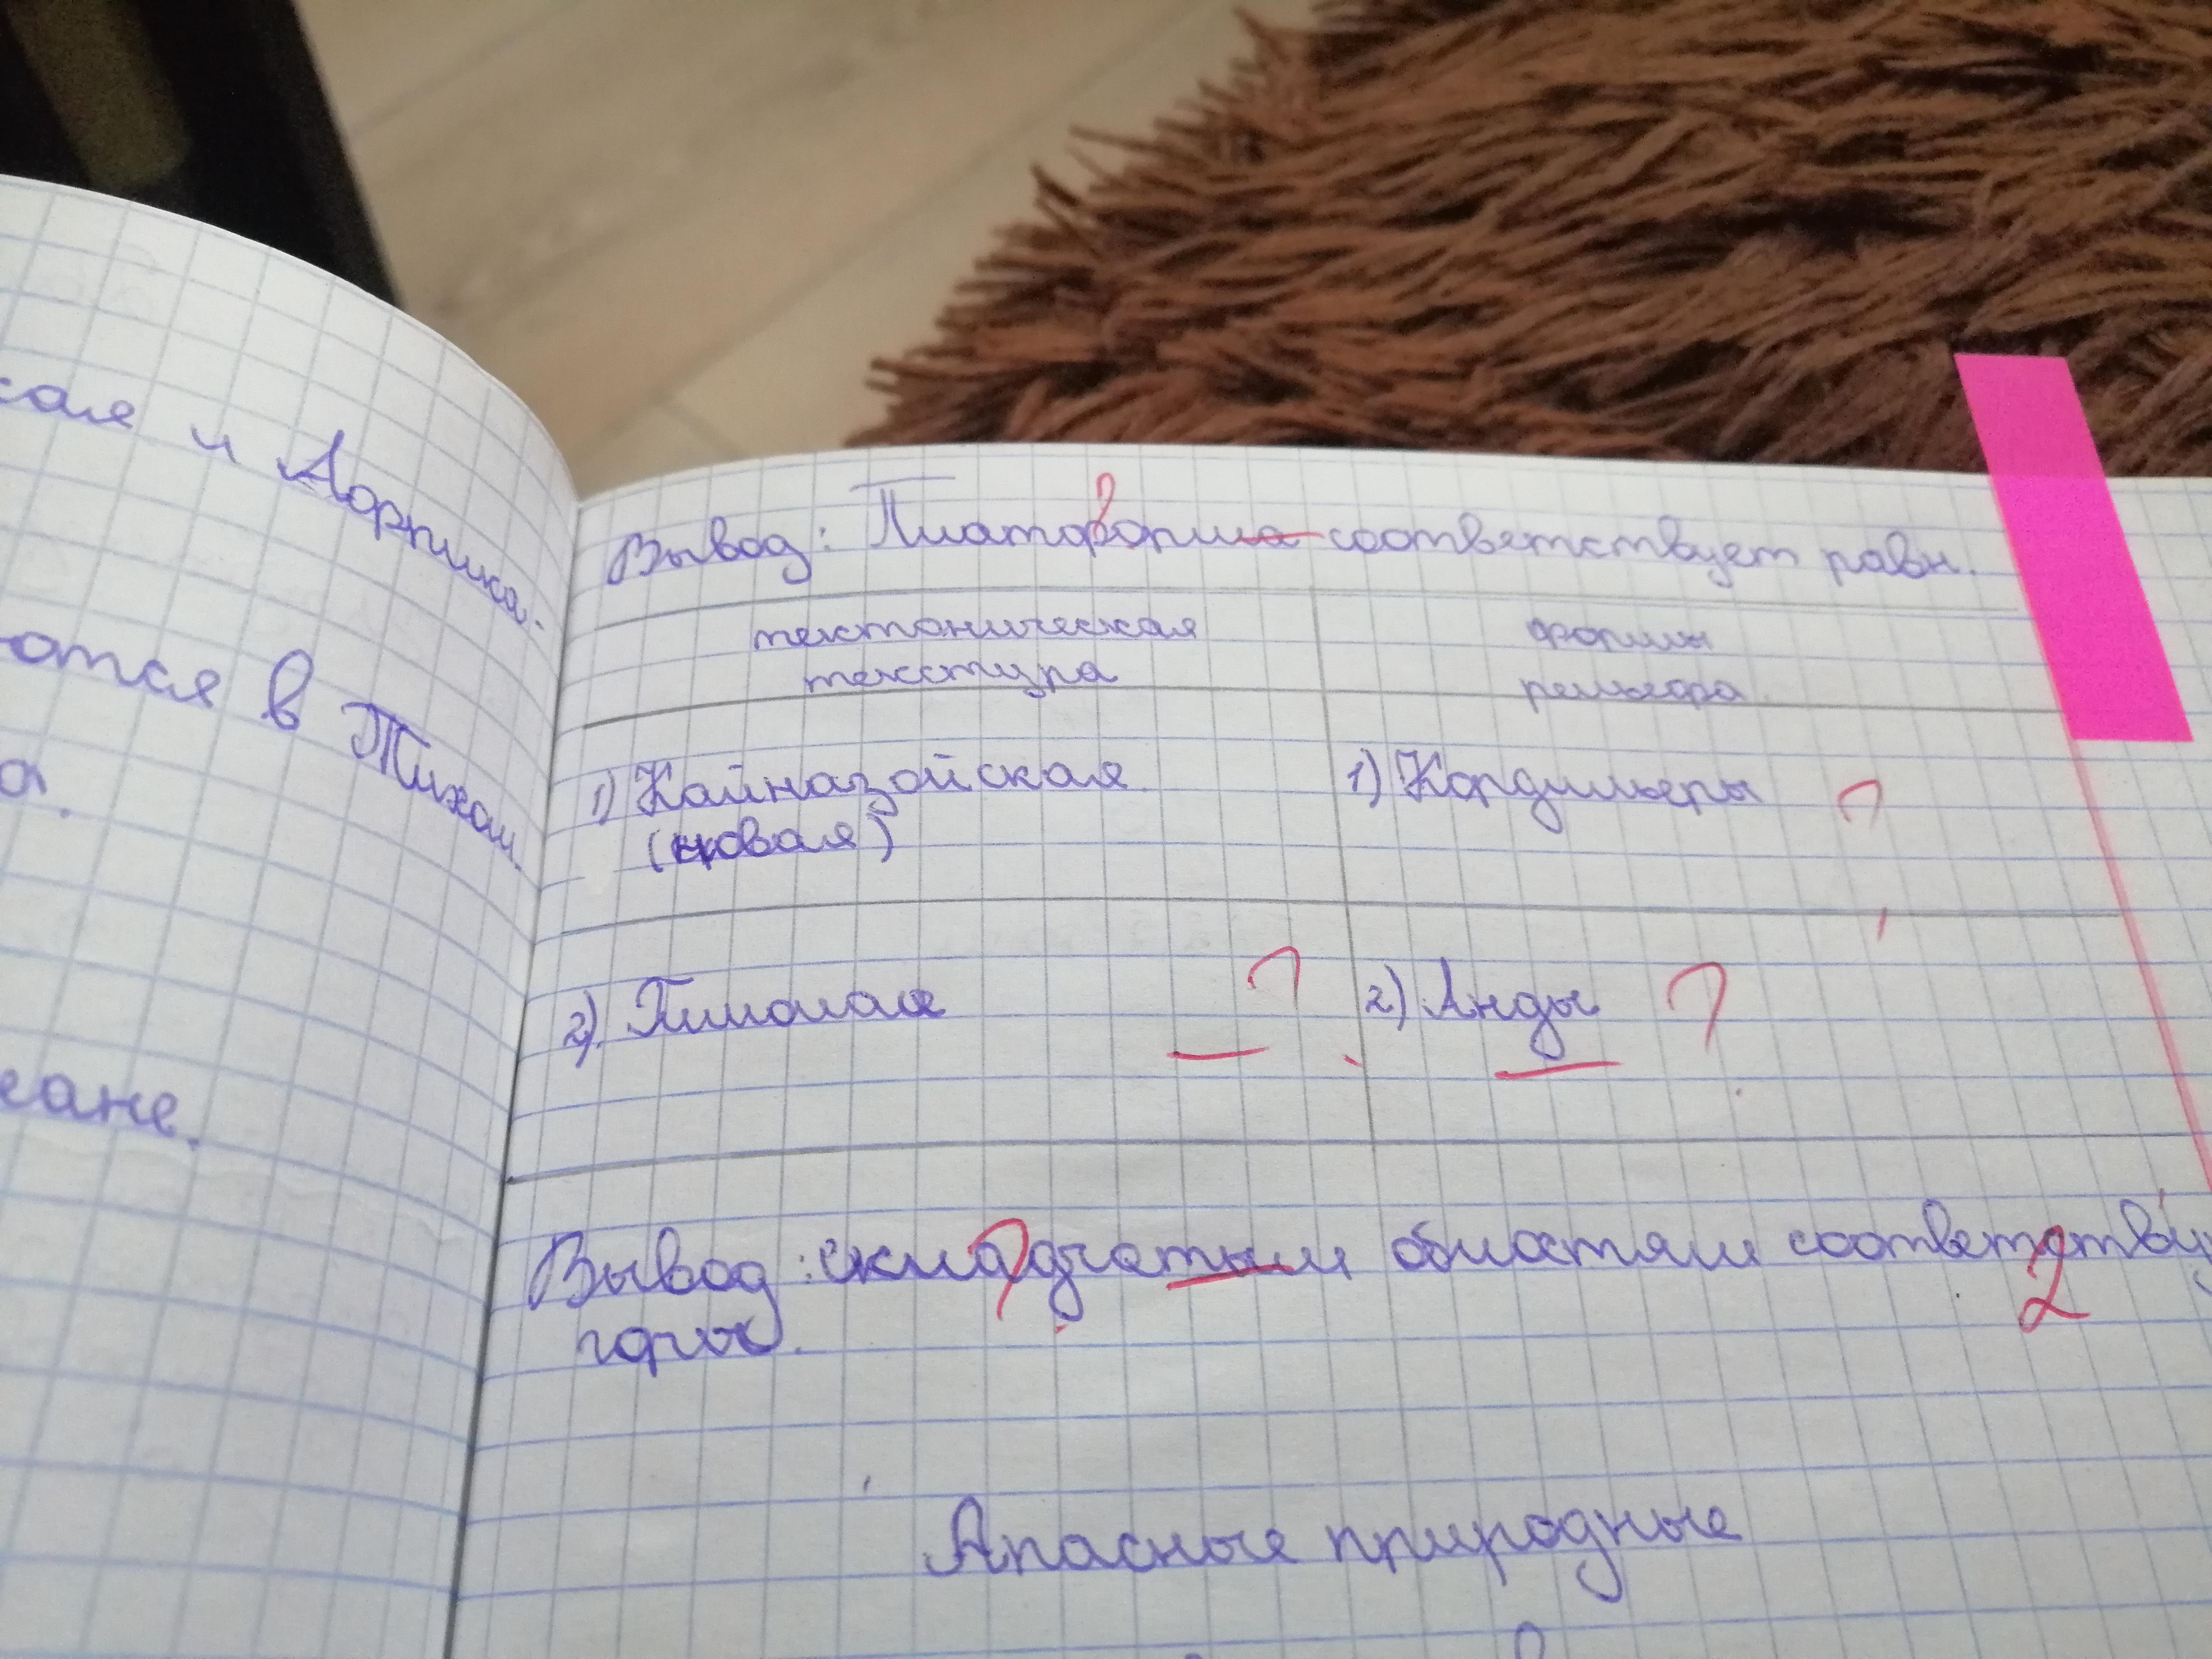 сая и Африка.
ются в Тихом.
а.
еане.
Вывод: Платоформа соответствует равн.
тектоническая формы
текстура рельефа
1) Кайназойская 1) Кордильеры ?
(новая)
2) ? 2) Анды ?
Вывод: складчатым областям соответству
2
горы.
Апасные природные